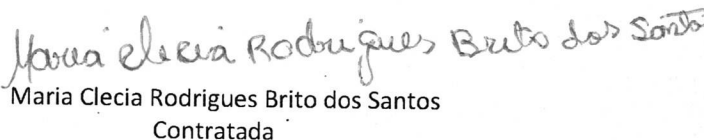 Maria Clecia Rodrigues Brito dos Santos
Maria Clecia Rodrigues Brito dos Santos
Contratada